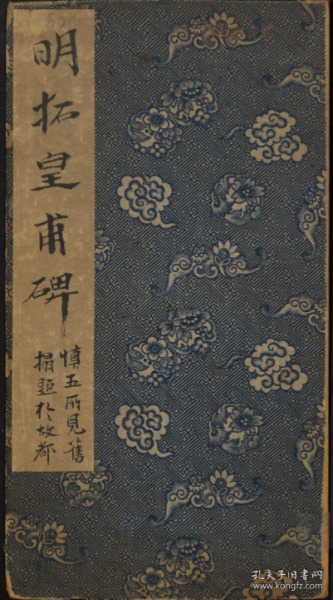 明拓皇甫碑
慎五所見舊
搨題於故都
孔夫子旧书网
www.kongfz.com